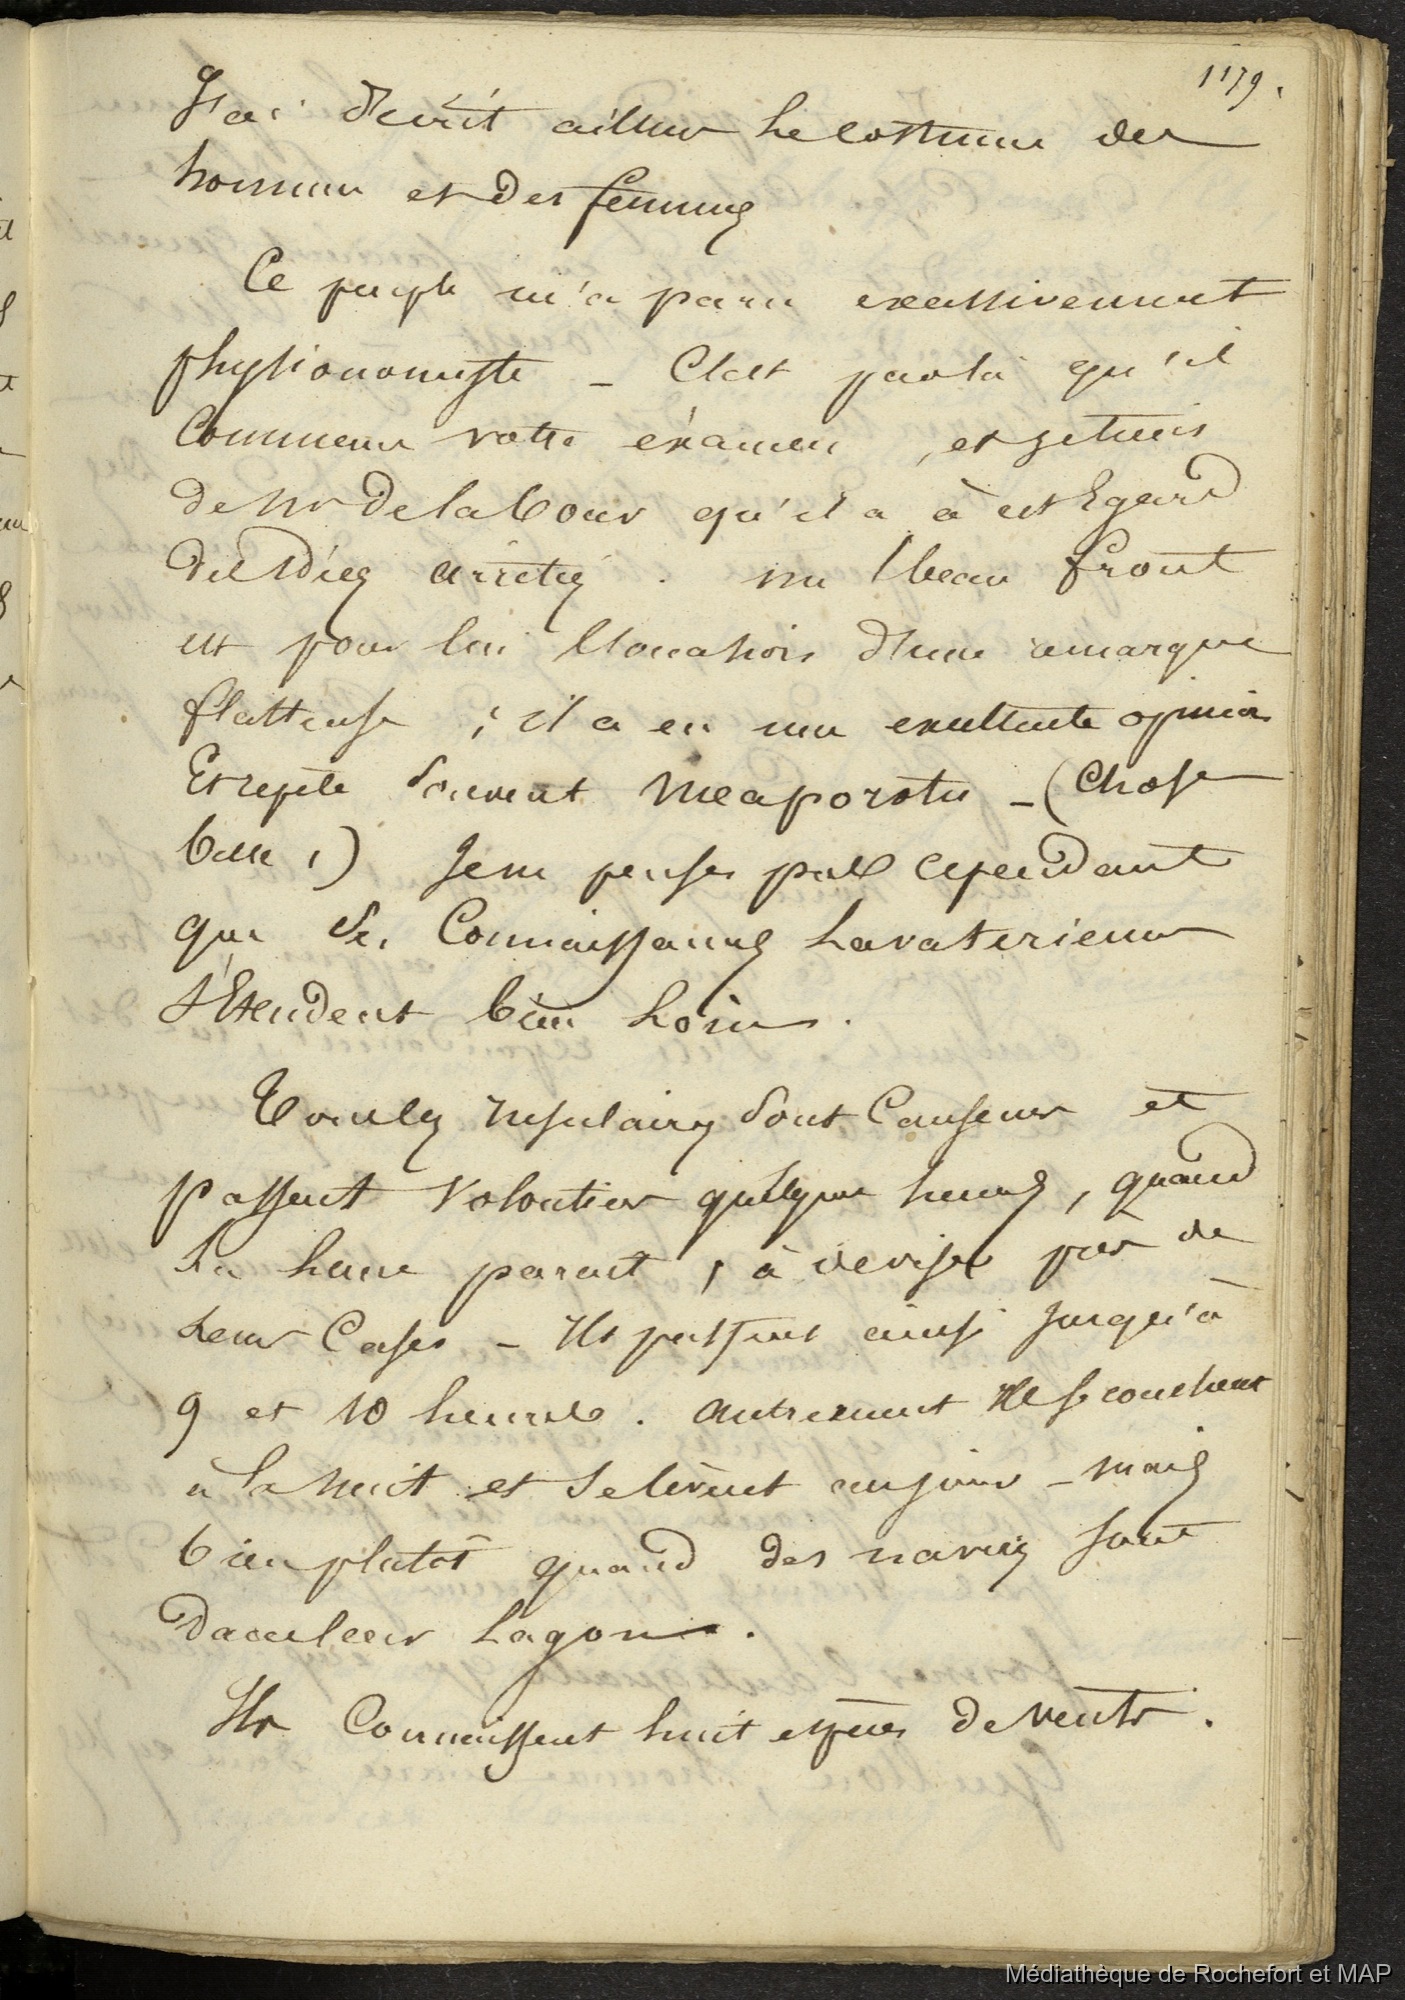 1179.
J'ai décrit ailleurs le costume des
hommes et des femmes
Ce peuple m'a paru excessivement
physionomiste _ C'est par là qu'il
Commence votre éxamen , et je tiens
de Mr Delacour qu'il a à cet Egard
des idées arrêtées . un beau front
est pour lui l'occasion d'une remarque
flatteuse ; il a en une excellente opinion
Et repète souvent Meaporotu _ (Chose
belle !) Je ne pense pas cependant
que ses Connaissances Lavateriennes
s'Etendent bien loin .
Tous les Insulaires sont Causeurs et
passent volontiers quelques heures , quand
la lune parait , à deviser près de
leurs Cases _ Ils passent ainsi jusqu'à
9 et 10 heures . autrement Ils se couchent
à la nuit et se lèvent au jour _ mais
bien plutôt quand des navires sont
dans leur Lagon .
Ils Connaissent huit espèces de vents .
Médiathèque de Rochefort et MAP